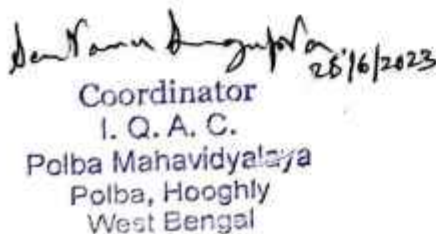 28/6/2023
Coordinator
I. Q. A. C.
Polba Mahavidyalaya
Polba, Hooghly
West Bengal